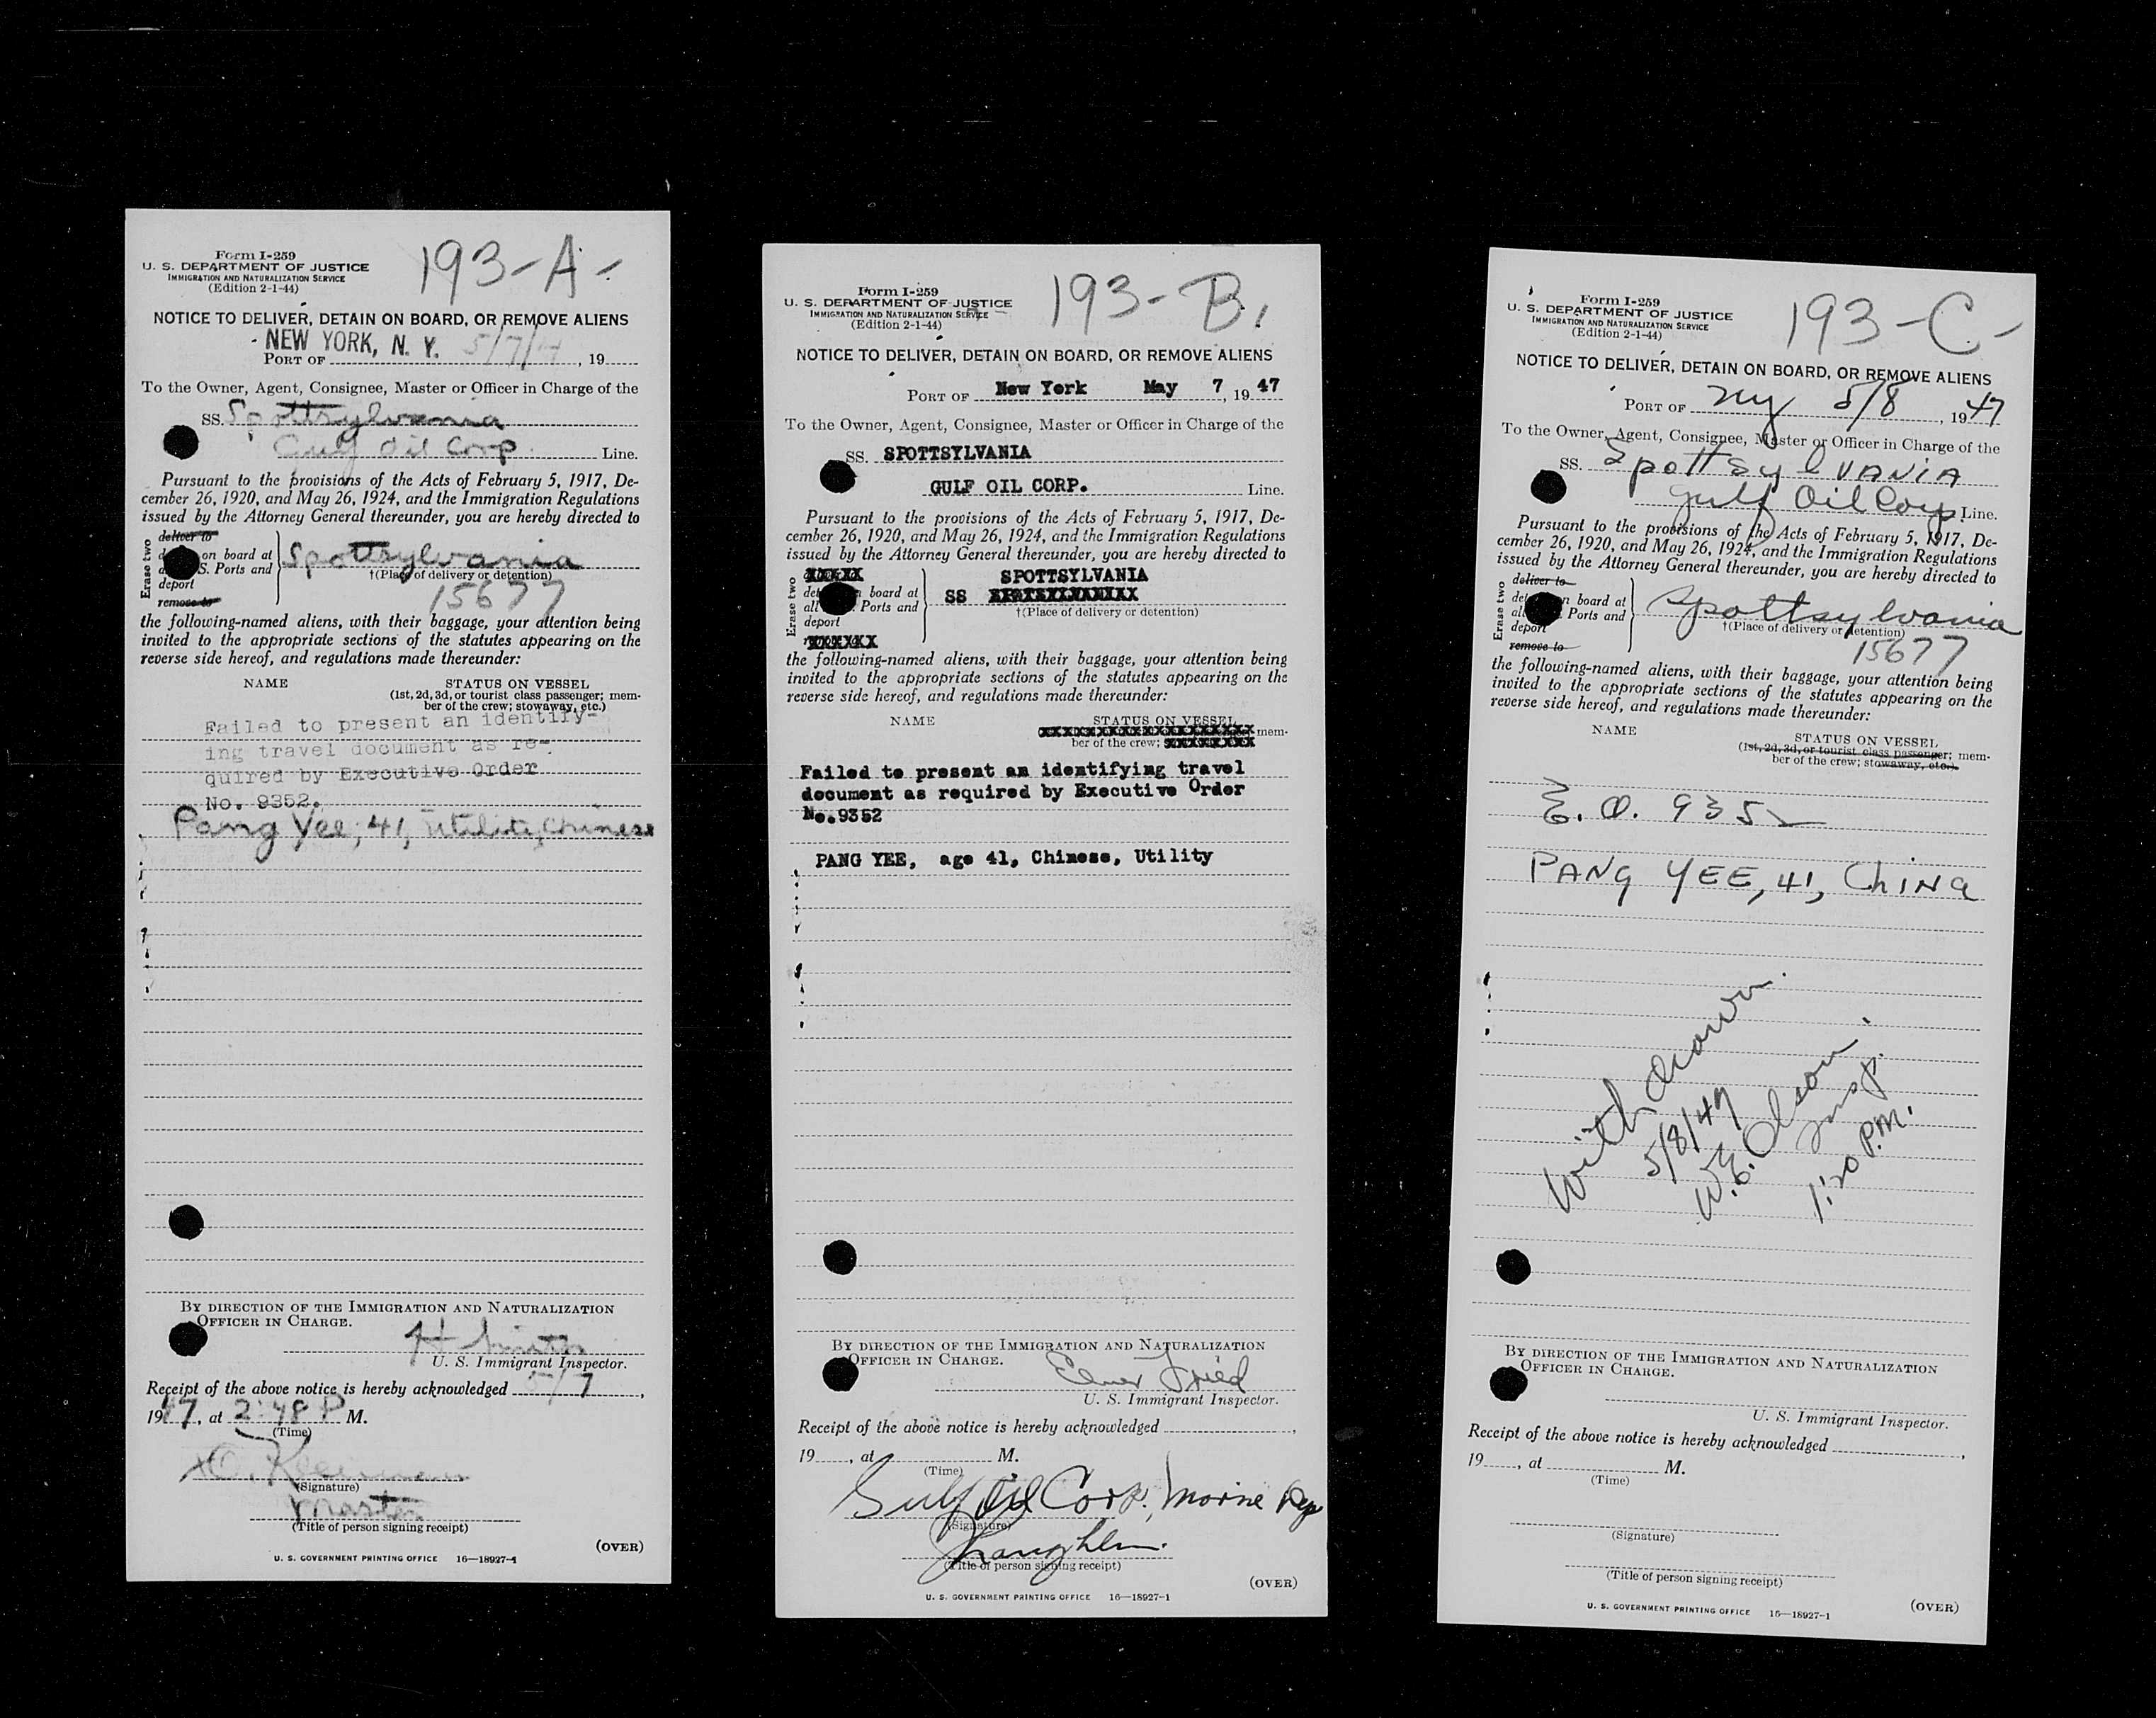 193-A-
Form I-259
U. S. DEPARTMENT OF JUSTICE
IMMIGRATION AND NATURALIZATION SERVICE
(Edition 2-1-44)
NOTICE TO DELIVER, DETAIN ON BOARD, OR REMOVE ALIENS
NEW YORK, N. Y. 5/7/
PORT OF , 19
To the Owner, Agent, Consignee, Master or Officer in Charge of the
SS. Spottsylvania
Gulf Oil Corp. Line.
Pursuant to the provisions of the Acts of February 5, 1917, De-
cember 26, 1920, and May 26, 1924, and the Immigration Regulations
issued by the Attorney General thereunder, you are hereby directed to
Erase two
deliver to
on board at
S. Ports and
deport
remove to
Spottsylvania
†(Place of delivery or detention)
15677
the following-named aliens, with their baggage, your attention being
invited to the appropriate sections of the statutes appearing on the
reverse side hereof, and regulations made thereunder:
NAME STATUS ON VESSEL
(1st, 2d, 3d, or tourist class passenger; mem-
ber of the crew; stowaway, etc.)
Failed to present an identify-
ing travel document as re-
quired by Executive Order
No. 9352.
Pang Yee, 41, Utility, Chinese
BY DIRECTION OF THE IMMIGRATION AND NATURALIZATION
OFFICER IN CHARGE.
U. S. Immigrant Inspector.
Receipt of the above notice is hereby acknowledged 5/7,
1947, at 2:48 P M.
(Time)
(Signature)
Master
(Title of person signing receipt)
(OVER)
U. S. GOVERNMENT PRINTING OFFICE 16—18927-1
193-B.
Form I-259
U. S. DEPARTMENT OF JUSTICE
IMMIGRATION AND NATURALIZATION SERVICE
(Edition 2-1-44)
NOTICE TO DELIVER, DETAIN ON BOARD, OR REMOVE ALIENS
PORT OF New York May 7, 19 47
To the Owner, Agent, Consignee, Master or Officer in Charge of the
SS. SPOTTSYLVANIA
GULF OIL CORP. Line.
Pursuant to the provisions of the Acts of February 5, 1917, De-
cember 26, 1920, and May 26, 1924, and the Immigration Regulations
issued by the Attorney General thereunder, you are hereby directed to
Erase two
XXXXX
board at
Ports and
deport
XXXXXX
SPOTTSYLVANIA
SS
†(Place of delivery or detention)
the following-named aliens, with their baggage, your attention being
invited to the appropriate sections of the statutes appearing on the
reverse side hereof, and regulations made thereunder:
NAME STATUS ON VESSEL
mem-
ber of the crew;
Failed to present an identifying travel
document as required by Executive Order
No.9352
PANG YEE, age 41, Chinese, Utility
BY DIRECTION OF THE IMMIGRATION AND NATURALIZATION
OFFICER IN CHARGE.
Elmer Fried
U. S. Immigrant Inspector.
Receipt of the above notice is hereby acknowledged ,
19 , at M.
(Time)
Gulf Oil Corp. Marine Dep
(Signature)
(Title of person signing receipt)
(OVER)
U. S. GOVERNMENT PRINTING OFFICE 16—18927-1
193-C-
Form I-259
U. S. DEPARTMENT OF JUSTICE
IMMIGRATION AND NATURALIZATION SERVICE
(Edition 2-1-44)
NOTICE TO DELIVER, DETAIN ON BOARD, OR REMOVE ALIENS
PORT OF NY 5/8, 1947
To the Owner, Agent, Consignee, Master or Officer in Charge of the
SS. Spottsylvania
Gulf Oil Corp. Line.
Pursuant to the provisions of the Acts of February 5, 1917, De-
cember 26, 1920, and May 26, 1924, and the Immigration Regulations
issued by the Attorney General thereunder, you are hereby directed to
Erase two
deliver to
board at
Ports and
deport
remove to
Spottsylvania
†(Place of delivery or detention)
15677
the following-named aliens, with their baggage, your attention being
invited to the appropriate sections of the statutes appearing on the
reverse side hereof, and regulations made thereunder:
NAME STATUS ON VESSEL
(1st, 2d, 3d, or tourist class passenger; mem-
ber of the crew; stowaway, etc.)
E.O. 9352
PANG YEE, 41, China
Withdrawn.
5/8/47
W.E. Olson.
Insp.
1:20 P.M.
BY DIRECTION OF THE IMMIGRATION AND NATURALIZATION
OFFICER IN CHARGE.
U. S. Immigrant Inspector.
Receipt of the above notice is hereby acknowledged ,
19 , at M.
(Time)
(Signature)
(Title of person signing receipt)
(OVER)
U. S. GOVERNMENT PRINTING OFFICE 16—18927-1